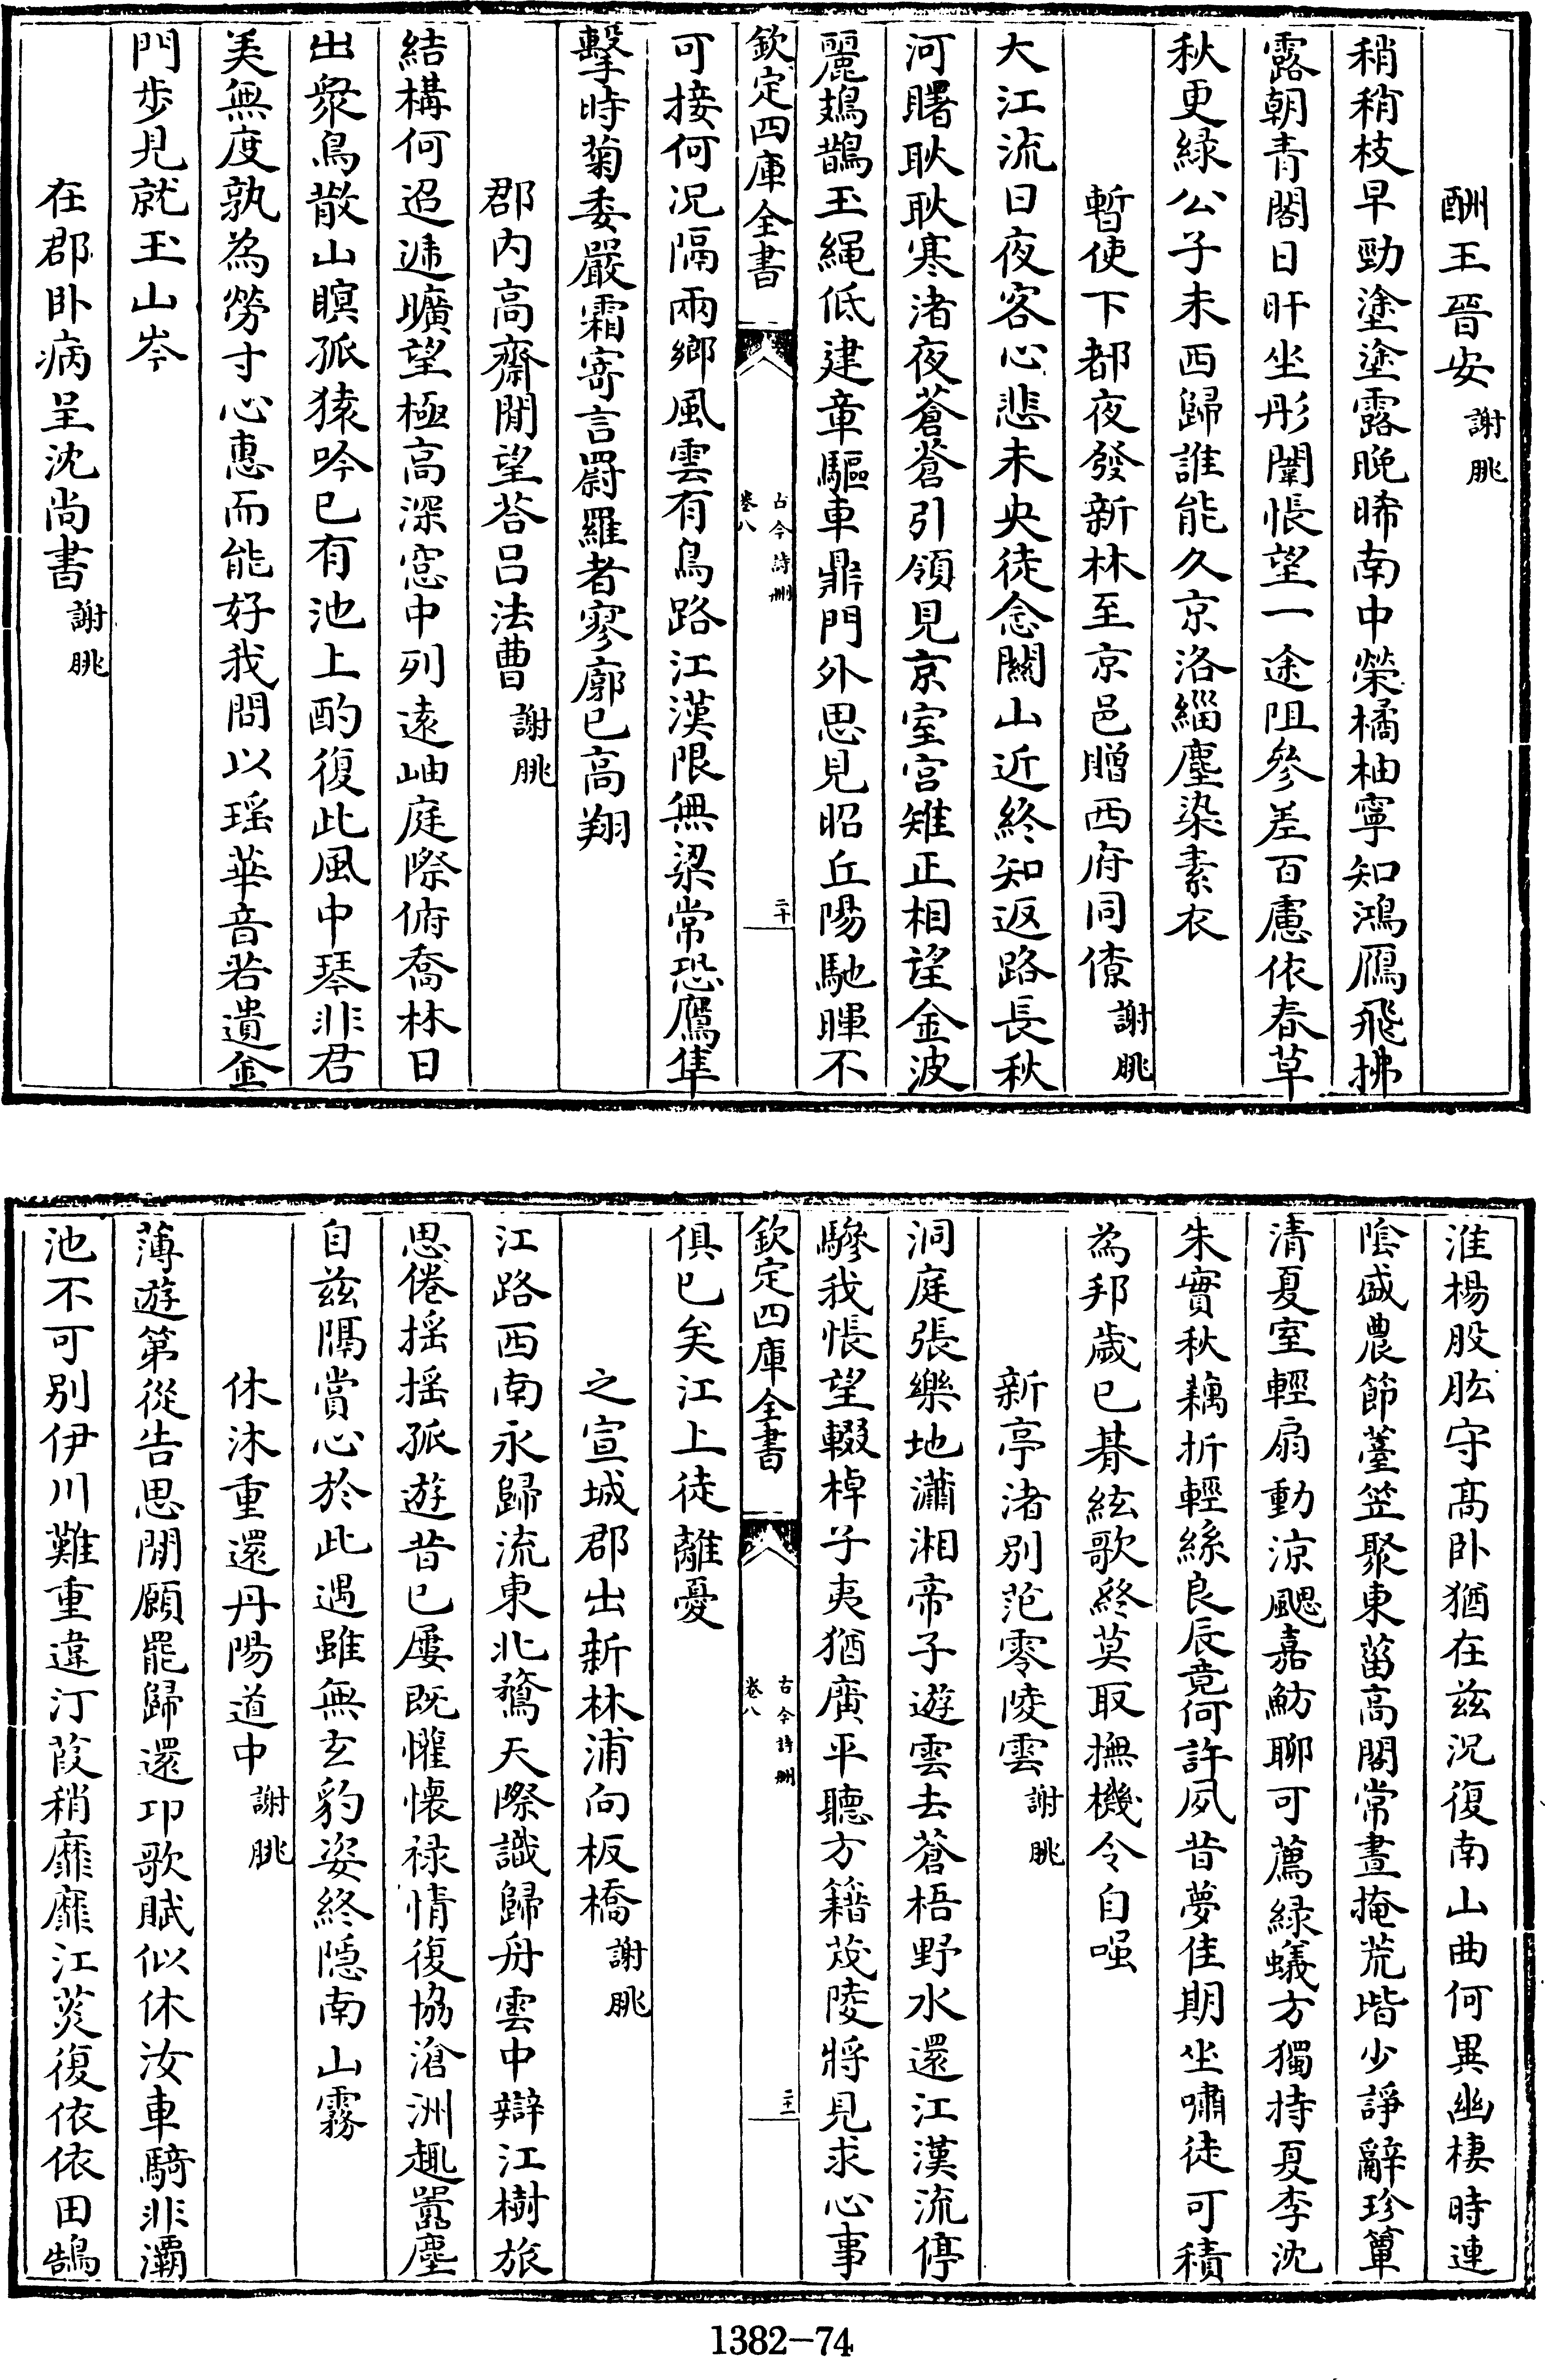 酬王晉安謝朓
稍稍枝早勁塗塗露晚晞南中榮橘柚寧知鴻鴈飛拂
露朝青閣日旰坐彤闈悵望一途阻參差百慮依春草
秋更綠公子未西歸誰能久京洛緇塵染素衣
暫使下都夜發新林至京邑贈西府同僚謝朓
大江流日夜客心悲未央徒念關山近終知返路長秋
河曙耿耿寒渚夜蒼蒼引領見京室宮雉正相望金波
麗鳷鵲玉繩低建章驅車鼎門外思見昭丘陽馳暉不
欽定四庫全書
古今詩刪
卷八
二十
可接何況隔兩鄉風雲有鳥路江漢限無梁常恐鷹隼
擊時菊委嚴霜寄言罻羅者寥廓已高翔
郡內高齋閒望荅呂法曹謝朓
結構何迢遞曠望極高深窓中列遠岫庭際俯喬林日
出衆鳥散山暝孤猿吟已有池上酌復此風中琴非君
美無度孰為勞寸心惠而能好我問以瑤華音若遺金
門步見就玉山岑
在郡卧病呈沈尚書謝朓
淮楊股肱守髙卧猶在兹況復南山曲何異幽棲時連
陰盛農節薹笠聚東菑高閣常晝掩荒堦少諍辭珍簟
清夏室輕扇動涼颸嘉魴聊可薦綠蟻方獨持夏李沈
朱實秋藕折輕絲良辰竟何許夙昔夢佳期坐嘯徒可積
為邦歲已朞絃歌終莫取撫機令自嗤
新亭渚别范零陵雲謝朓
洞庭張樂地瀟湘帝子遊雲去蒼梧野水還江漢流停
驂我悵望輟棹子夷猶廣平聽方籍茂陵將見求心事
欽定四庫全書
古今詩刪
卷八
二十一
俱已矣江上徒離憂
之宣城郡出新林浦向板橋謝朓
江路西南永歸流東北騖天際識歸舟雲中辯江樹旅
思倦揺揺孤遊昔已屢既懽懷禄情復協滄洲趣囂塵
自兹隔賞心於此遇雖無玄豹姿終隱南山霧
休沐重還丹陽道中謝朓
薄遊第從告思閒願罷歸還卭歌賦似休汝車騎非灞
池不可别伊川難重違汀葭稍靡靡江菼復依依田鵠
1382-74